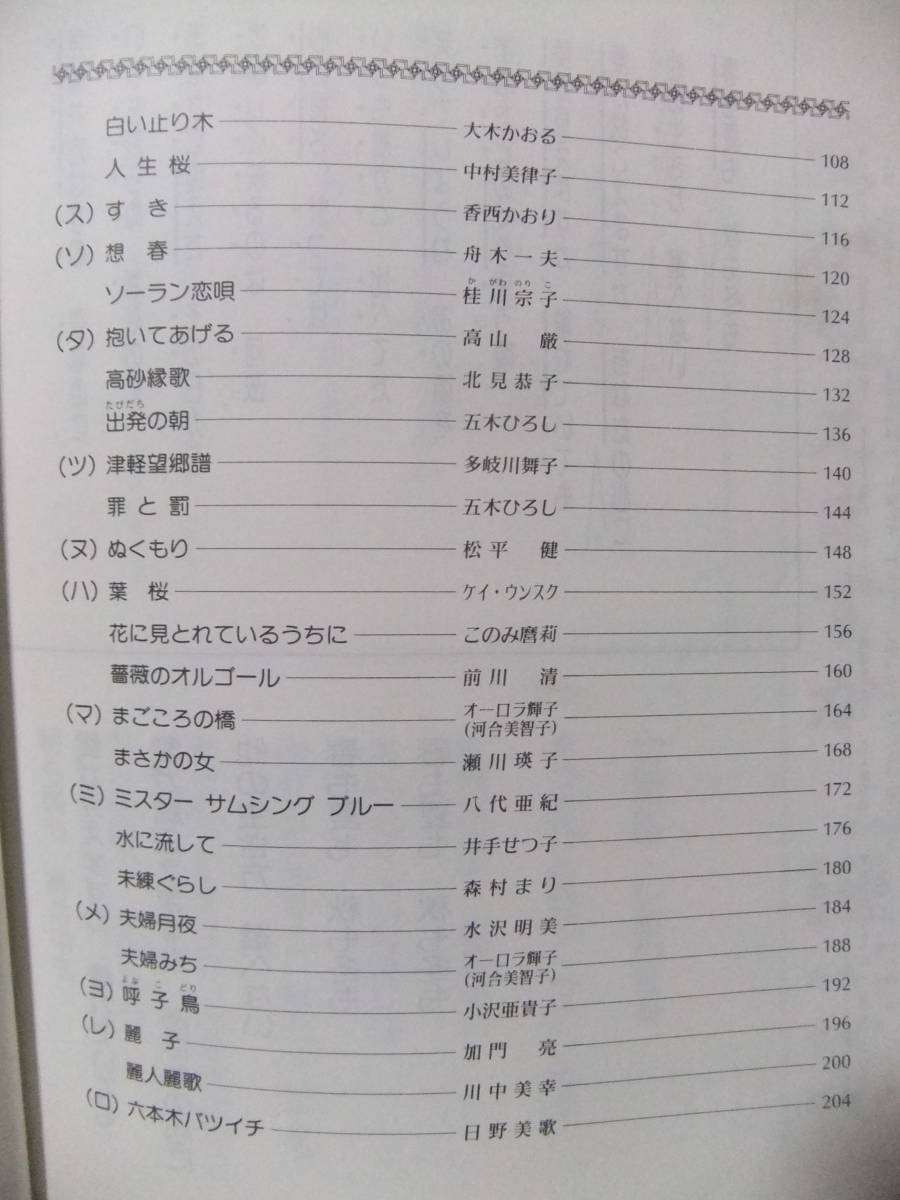 白い止り木 大木かおる 108
人生桜 中村美律子 112
(ス) すき 香西かおり 116
(ソ) 想春 舟木一夫 120
ソーラン恋唄 桂川宗子 かがわのりこ 124
(タ) 抱いてあげる 高山厳 128
高砂縁歌 北見恭子 132
出発の朝 たびだち 五木ひろし 136
(ツ) 津軽望郷譜 多岐川舞子 140
罪と罰 五木ひろし 144
(ヌ) ぬくもり 松平健 148
(ハ) 葉桜 ケイ・ウンスク 152
花に見とれているうちに このみ麿莉 156
薔薇のオルゴール 前川清 160
(マ) まごころの橋 オーロラ輝子 (河合美智子) 164
まさかの女 瀬川瑛子 168
(ミ) ミスター サムシング ブルー 八代亜紀 172
水に流して 井手せつ子 176
未練ぐらし 森村まり 180
(メ) 夫婦月夜 水沢明美 184
夫婦みち オーロラ輝子 (河合美智子) 188
(ヨ) 呼子鳥 よぶこどり 小沢亜貴子 192
(レ) 麗子 加門亮 196
麗人麗歌 川中美幸 200
(ロ) 六本木バツイチ 日野美歌 204